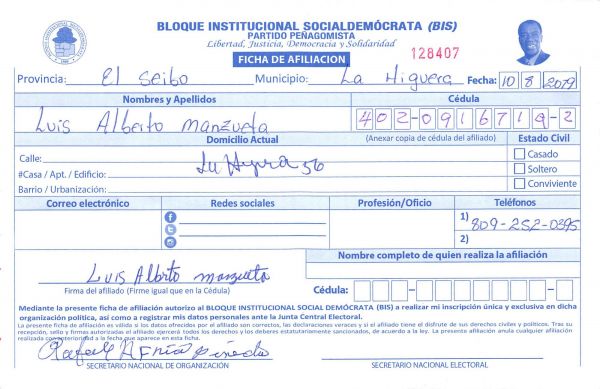 BLOQUE INSTITUCIONAL SOCIALDEMÓCRATA (BIS)
PARTIDO PEÑAGOMISTA
Libertad, Justicia, Democracia y Solidaridad
FICHA DE AFILIACION 128407
Provincia: El Seibo Municipio: La Higuera Fecha: 10 8 2019
Nombres y Apellidos Cédula
Luis Alberto Manzueta 402-0916714-2
Domicilio Actual (Anexar copia de cédula del afiliado) Estado Civil
Calle: Casado
#Casa / Apt. / Edificio: 56 Soltero
Barrio / Urbanización: Conviviente
Correo electrónico Redes sociales Profesión/Oficio Teléfonos
1) 809-252-0395
2)
Nombre completo de quien realiza la afiliación
Luis Alberto manzueta
Firma del afiliado (Firme igual que en la Cédula) Cédula:
Mediante la presente ficha de afiliación autorizo al BLOQUE INSTITUCIONAL SOCIAL DEMÓCRATA (BIS) a realizar mi inscripción única y exclusiva en dicha
organización política, así como a registrar mis datos personales ante la Junta Central Electoral.
La presente ficha de afiliación es válida si los datos ofrecidos por el afiliado son correctos, las declaraciones veraces y si el afiliado tiene el disfrute de sus derechos civiles y políticos. Tras su
recepción, sello y firmas autorizadas el afiliado ejercerá todos los derechos y los deberes estatutariamente sancionados, de acuerdo a la ley. La presente afiliación anula cualquier afiliación
realizada con anterioridad a la fecha que aparece en esta ficha.
Rafael
SECRETARIO NACIONAL DE ORGANIZACIÓN SECRETARIO NACIONAL ELECTORAL